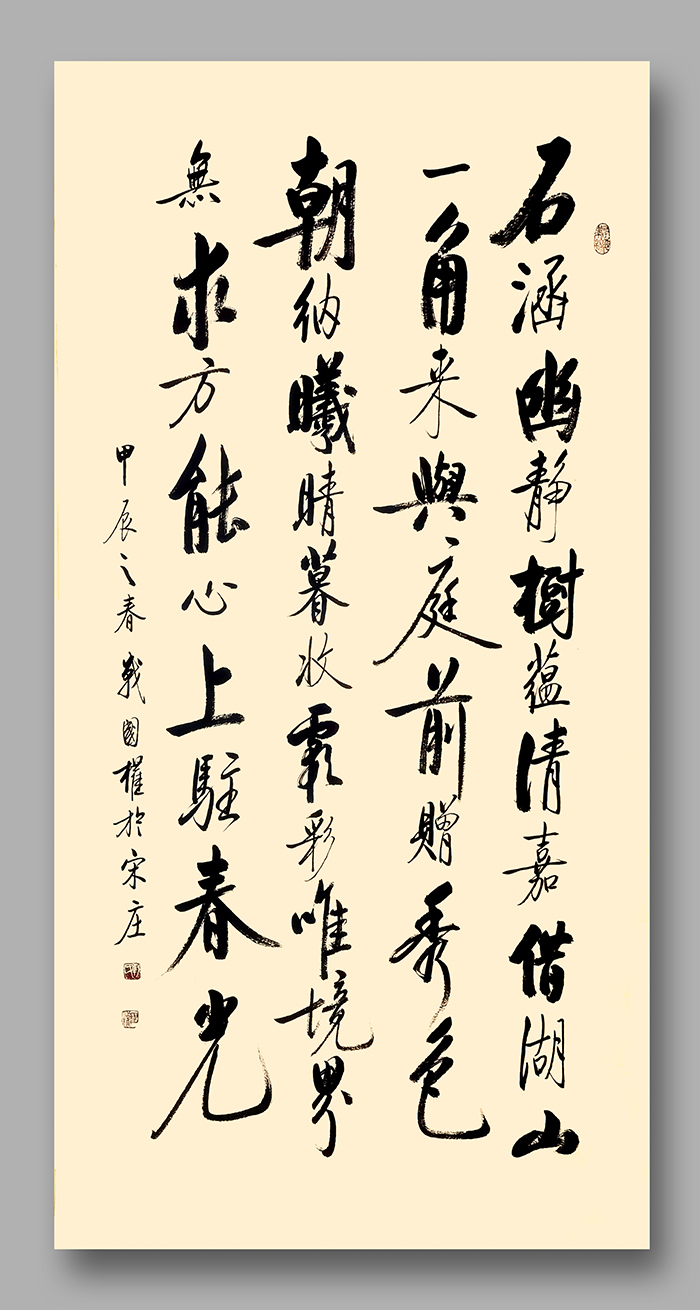 石涵幽静樹蕴清嘉借湖山
一角来與庭前贈秀色
朝纳曦晴暮收霞彩唯境界
無求方能心上駐春光
甲辰之春戰國權於宋庄